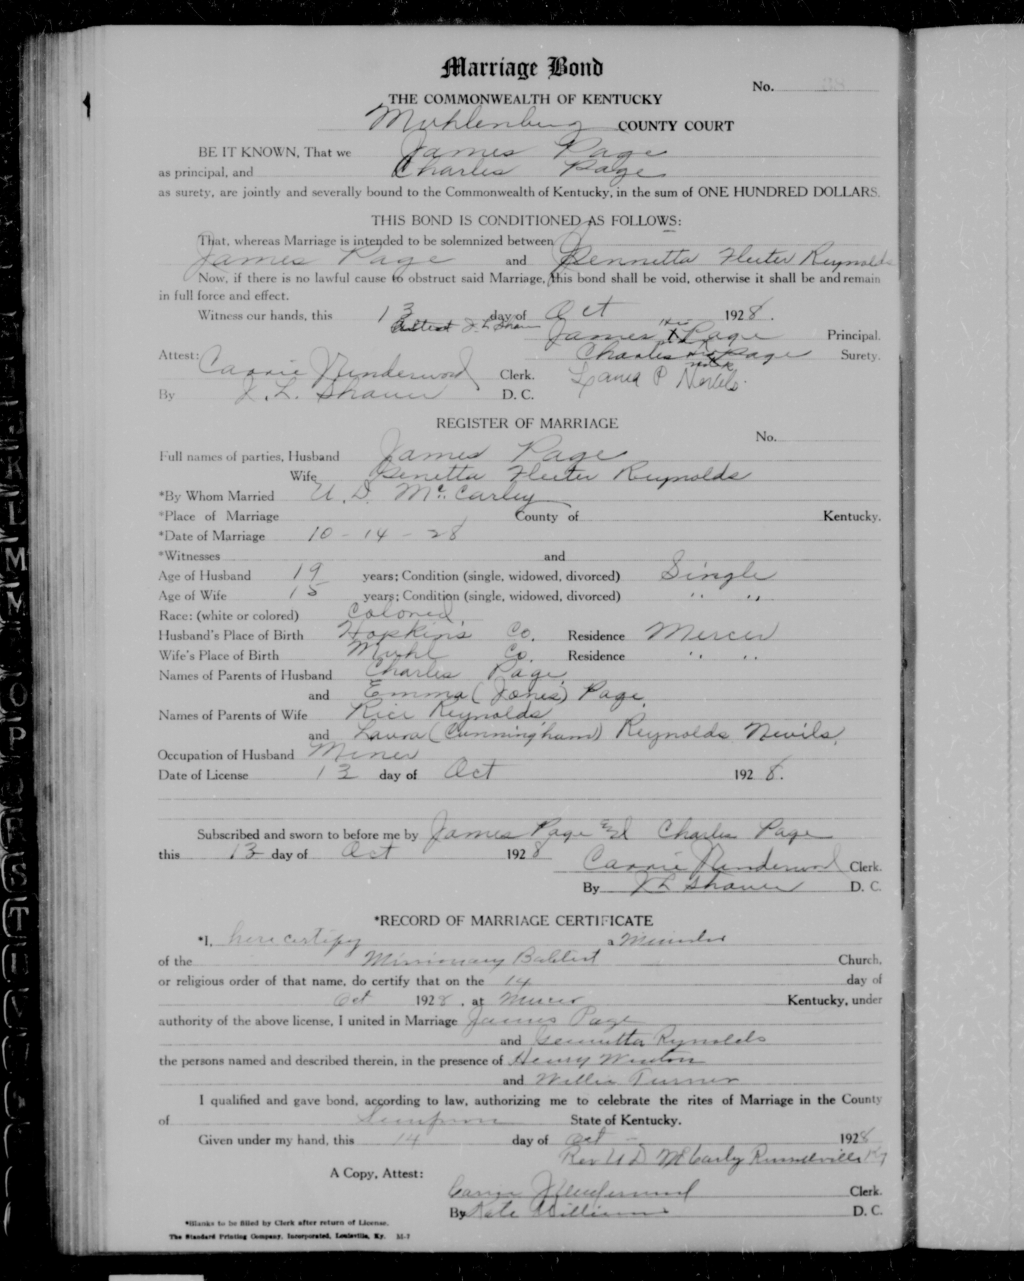 Marriage Bond
No.
THE COMMONWEALTH OF KENTUCKY
Muhlenberg COUNTY COURT
BE IT KNOWN, That we James Page
as principal, and Charles Page
as surety, are jointly and severally bound to the Commonwealth of Kentucky, in the sum of ONE HUNDRED DOLLARS.
THIS BOND IS CONDITIONED AS FOLLOWS:
That, whereas Marriage is intended to be solemnized between
James Page and Jennetta Reynolds
Now, if there is no lawful cause to obstruct said Marriage, this bond shall be void, otherwise it shall be and remain
in full force and effect.
Witness our hands, this 13 day of Oct 1928.
Attest J L Shaver
James His X Page Principal.
Charles His Page Surety.
mark
Attest: Carrie Clerk. Laura P Nevils.
By J. L. Shaver D. C.
REGISTER OF MARRIAGE
No.
Full names of parties, Husband James Page
Wife Genetta Reynolds
*By Whom Married U. D. McCarley
*Place of Marriage County of Kentucky.
*Date of Marriage 10-14-28
*Witnesses and
Age of Husband 19 years; Condition (single, widowed, divorced) Single
Age of Wife 15 years; Condition (single, widowed, divorced) " "
Race: (white or colored) Colored
Husband's Place of Birth Hopkins Co. Residence Mercer
Wife's Place of Birth Muhl Co. Residence " "
Names of Parents of Husband Charles Page
and Emma (Jones) Page.
Names of Parents of Wife Rice Reynolds
and Laura (Cunningham) Reynolds Nevils.
Occupation of Husband Miner
Date of License 13 day of Oct 1928.
Subscribed and sworn to before me by James Page and Charles Page
this 13 day of Oct 1928
Carrie Clerk.
By J L Shaver D. C.
*RECORD OF MARRIAGE CERTIFICATE
*I, here certify a Minister
of the Missionary Babtist Church,
or religious order of that name, do certify that on the 14 day of
Oct 1928, at Mercer Kentucky, under
authority of the above license, I united in Marriage James Page
and Gennetta Rynolds
the persons named and described therein, in the presence of Henry Winton
and Willie Turner
I qualified and gave bond, according to law, authorizing me to celebrate the rites of Marriage in the County
of Simpson State of Kentucky.
Given under my hand, this 14 day of Oct 1928
Rev U D McCarly Russellville Ky
A Copy, Attest:
Carrie Clerk.
By Kate Williams D. C.
*Blanks to be filled by Clerk after return of License.
The Standard Printing Company, Incorporated, Louisville, Ky. M-7